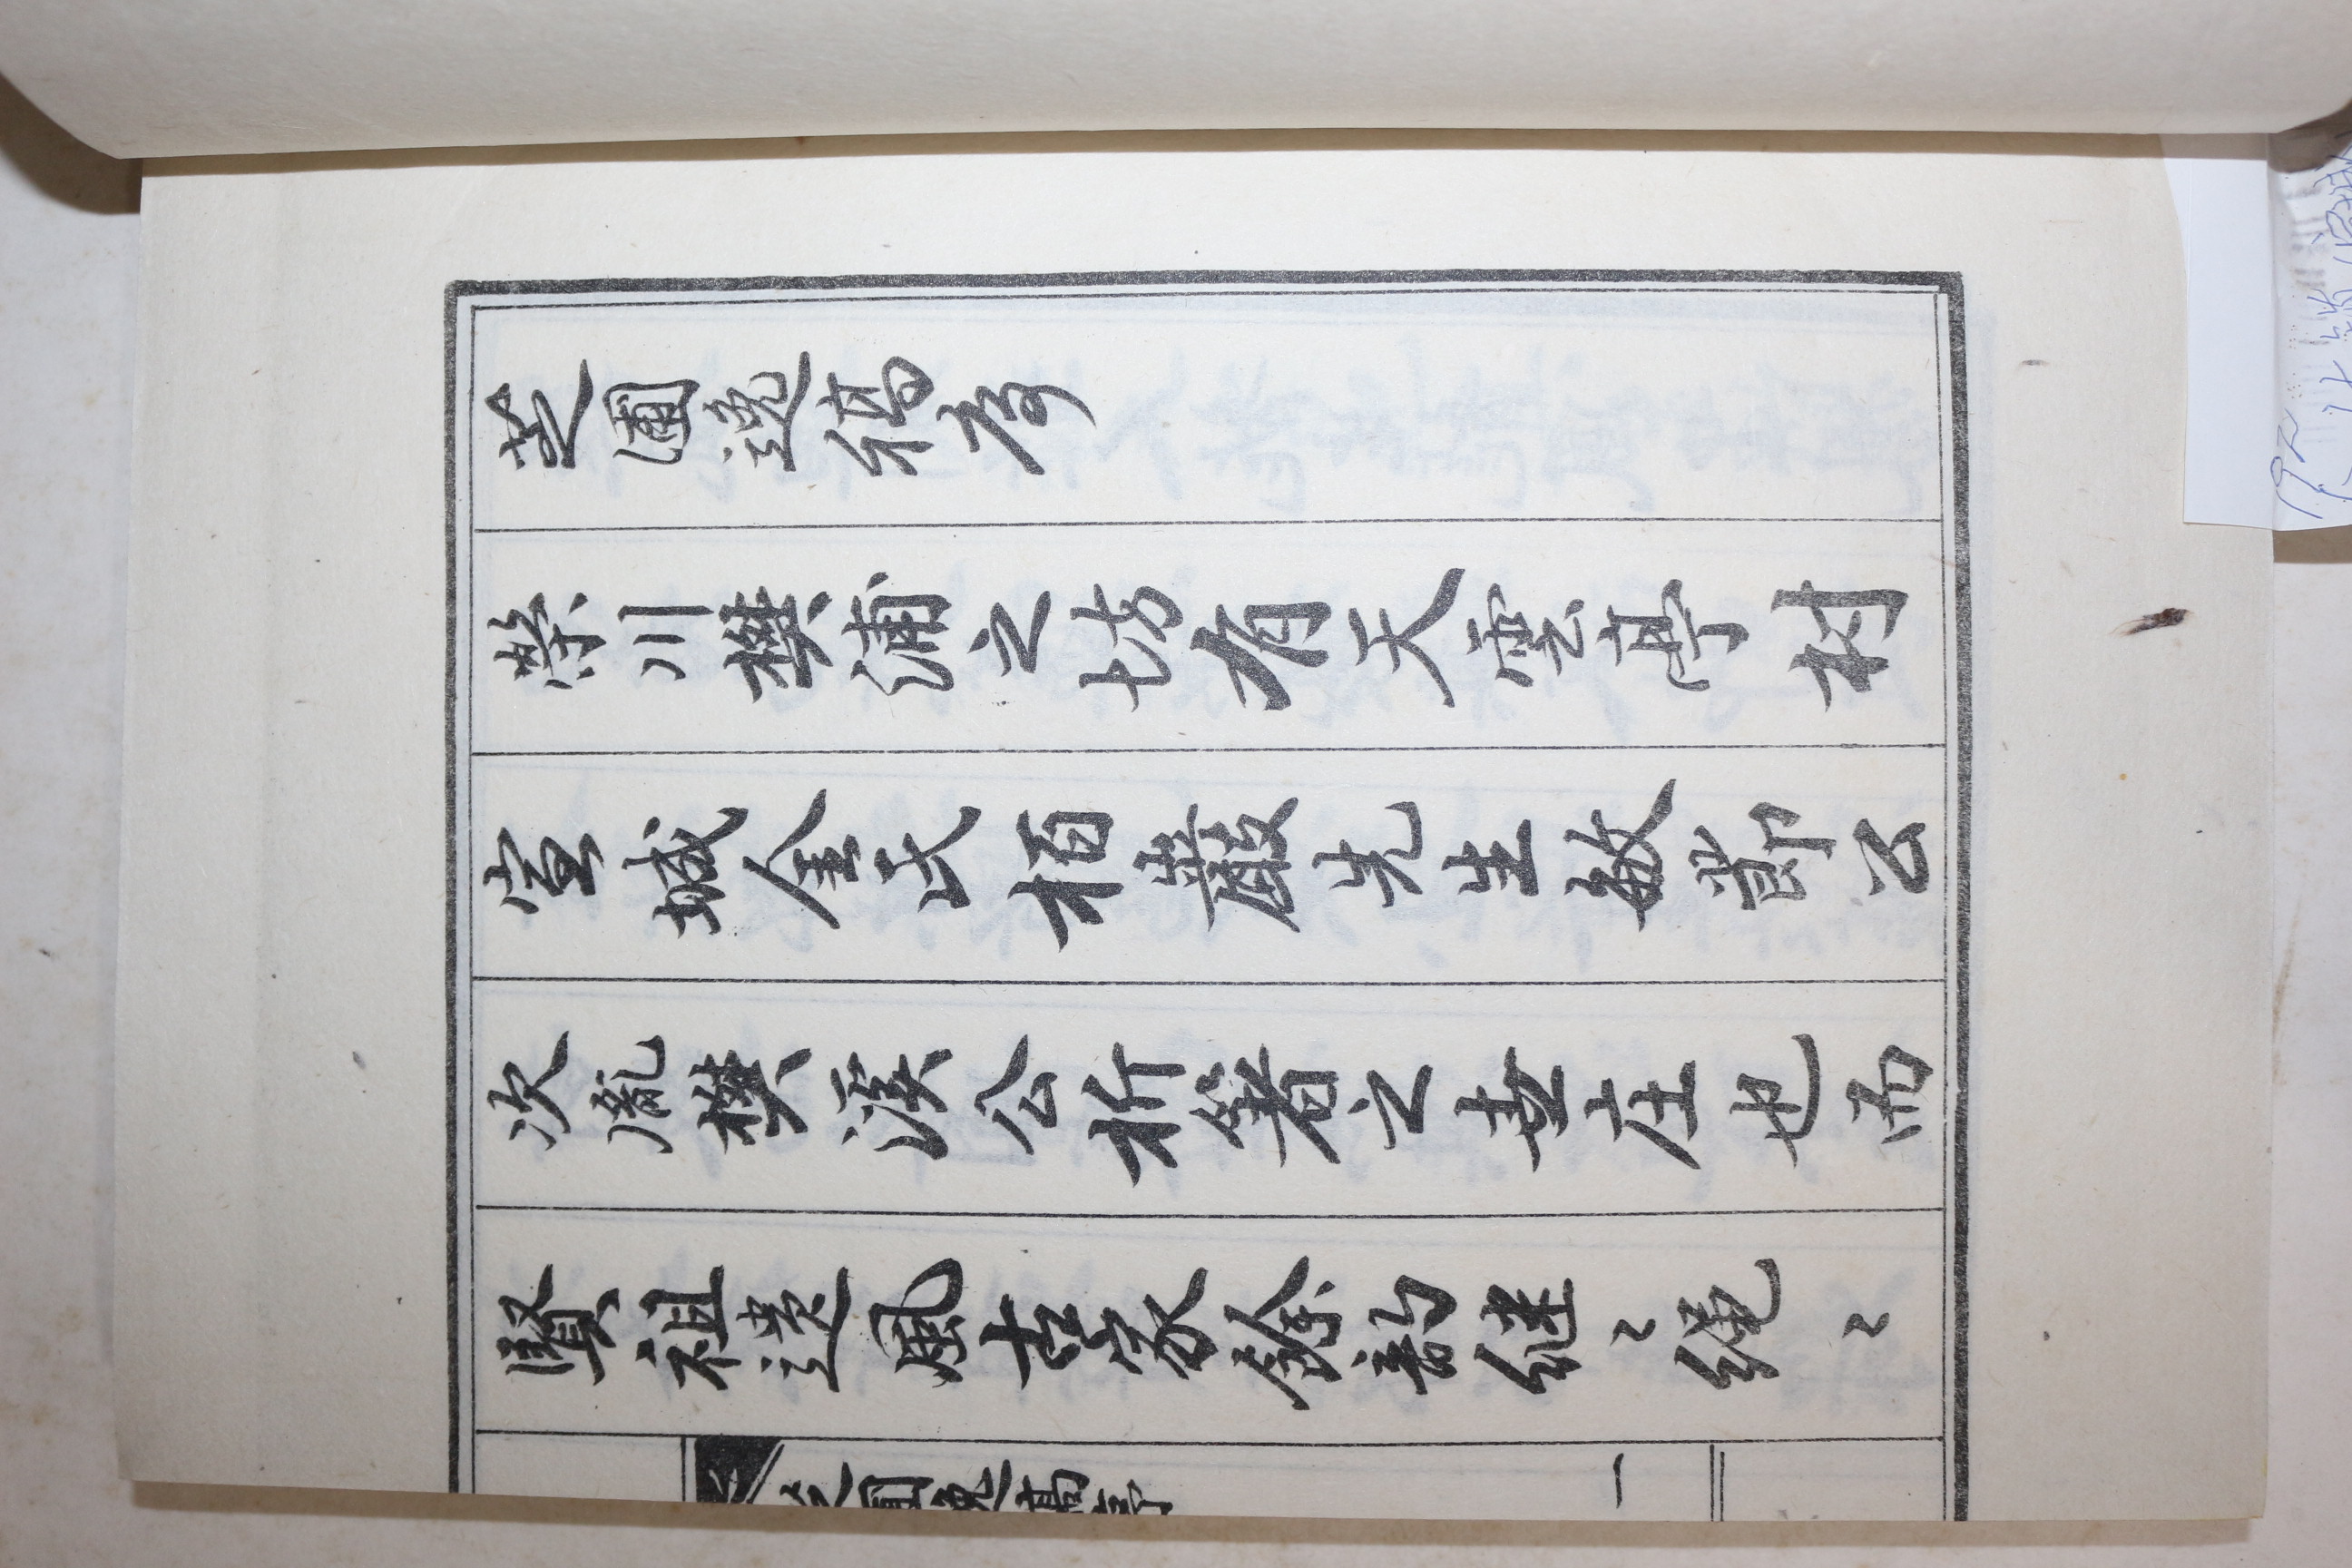 芝圃逸稿序
榮川樊浦之坊有天雲亭村
宣城金氏栢巖先生敏節公
次胤樊溪公析箸之基庄也而
賢祖遺風古家餘韵继〻绳〻
芝圃逸稿序
一
192